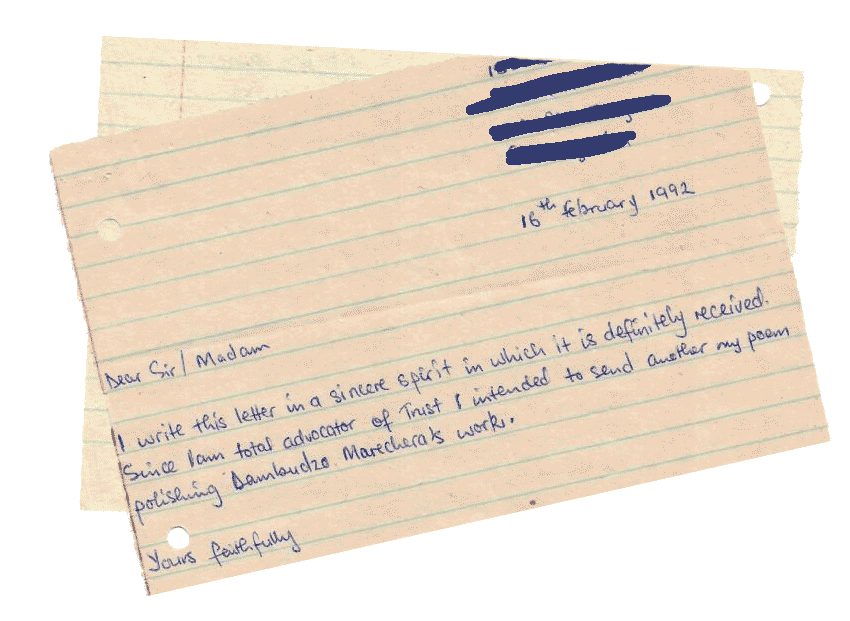 16th february 1992
Dear Sir/ Madam
I write this letter in a sincere spirit in which it is definitely received.
Since I am total advocator of Trust I intended to send another my poem
polishing Dambudzo Marechera's work.
Yours faithfully